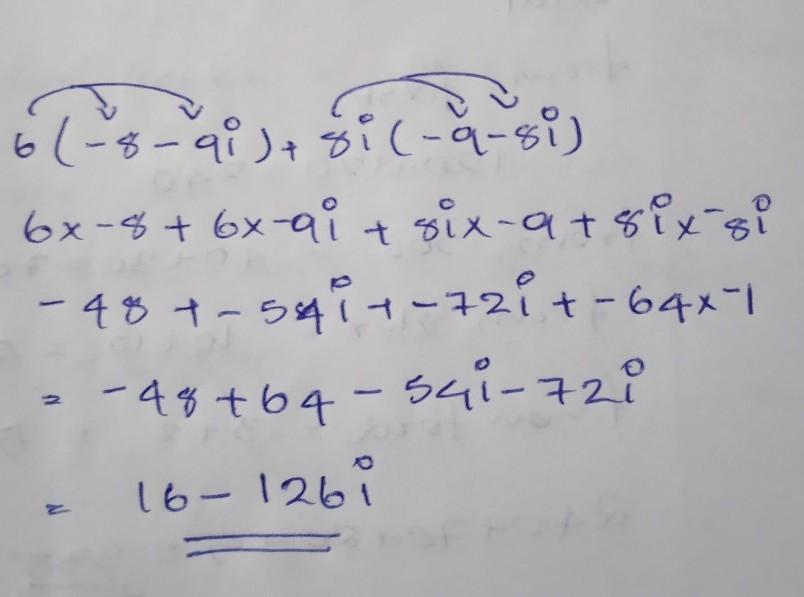 6(-8-9i)+8i(-9-8i)
6x-8+6x-9i+8ix-9+8ix-8i
-48+-54i+-72i+-64x-1
=-48+64-54i-72i
=16-126i